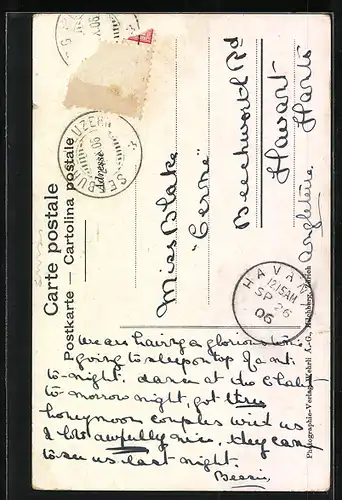 Carte postale
Postkarte — Cartolina postale
Adresse
LUZERN
SEEBURG
Miss Blake
"Cerne"
Beechworth Rd
Havant
Hants
Angleterre
HAVANT
12.15AM
SP 26
06
Photographie-Verlag Wehrli A.-G., Kilchberg, Zürich
We are having a glorious time
going to sleep on top of a mt.
to-night. dance at the
to-morrow night, got three
honeymoon couples with us
& lots awfully nice. They came
to see us last night.
Bessie.